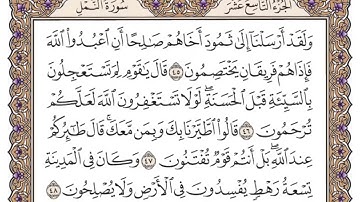 الجزء التاسع عشر
سورة النمل
وَلَقَدۡ أَرۡسَلۡنَآ إِلَىٰ ثَمُودَ أَخَاهُمۡ صَٰلِحًا أَنِ ٱعۡبُدُواْ ٱللَّهَ
فَإِذَا هُمۡ فَرِيقَانِ يَخۡتَصِمُونَ ٤٥ قَالَ يَٰقَوۡمِ لِمَ تَسۡتَعۡجِلُونَ
بِٱلسَّيِّئَةِ قَبۡلَ ٱلۡحَسَنَةِۖ لَوۡلَا تَسۡتَغۡفِرُونَ ٱللَّهَ لَعَلَّكُمۡ
تُرۡحَمُونَ ٤٦ قَالُواْ ٱطَّيَّرۡنَا بِكَ وَبِمَن مَّعَكَۚ قَالَ طَٰٓئِرُكُمۡ
عِندَ ٱللَّهِۖ بَلۡ أَنتُمۡ قَوۡمٞ تُفۡتَنُونَ ٤٧ وَكَانَ فِي ٱلۡمَدِينَةِ
تِسۡعَةُ رَهۡطٖ يُفۡسِدُونَ فِي ٱلۡأَرۡضِ وَلَا يُصۡلِحُونَ ٤٨